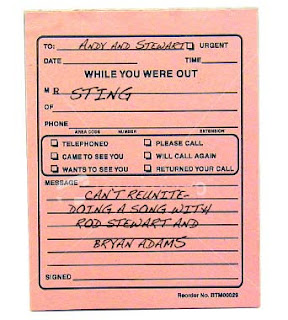 TO: ANDY AND STEWART URGENT
DATE TIME
WHILE YOU WERE OUT
MR STING
OF
PHONE
AREA CODE NUMBER EXTENSION
TELEPHONED PLEASE CALL
CAME TO SEE YOU WILL CALL AGAIN
WANTS TO SEE YOU RETURNED YOUR CALL
MESSAGE
CAN'T REUNITE-
DOING A SONG WITH
ROD STEWART AND
BRYAN ADAMS
SIGNED
Reorder No. BTM00029